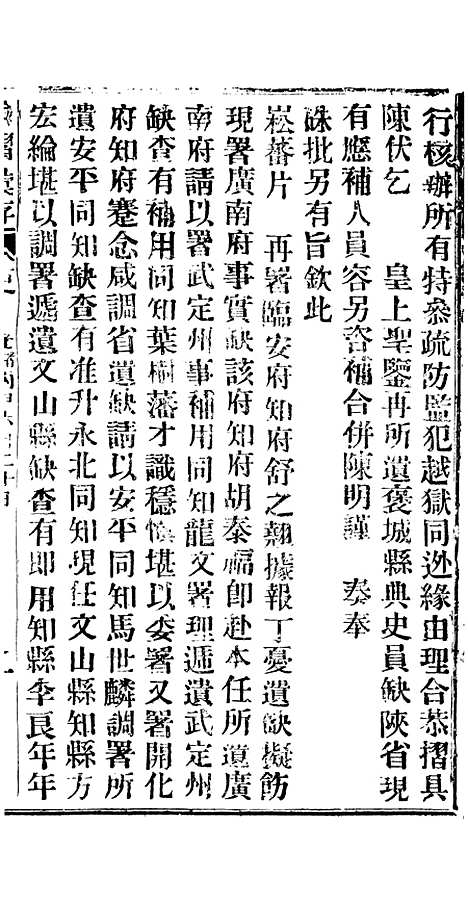 行核辦所有特叅疏防監犯越獄同逃緣由理合恭摺具
陳伏乞　皇上聖鑒再所遺褒城縣典史員缺陝省現
有應補人員容另咨補合併陳明謹　奏奉
硃批另有旨欽此
崧蕃片　再署臨安府知府舒之翹據報丁憂遺缺擬飭
現署廣南府事實缺該府知府胡泰福卽赴本任所遺廣
南府請以署武定州事補用同知龍文署理遞遺武定州
缺查有補用同知葉樹藩才識穩慎堪以委署又署開化
府知府蹇念咸調省遺缺請以安平同知馬世麟調署所
遺安平同知缺查有准升永北同知現任文山縣知縣方
宏綸堪以調署遞遺文山縣缺查有即用知縣李良年年